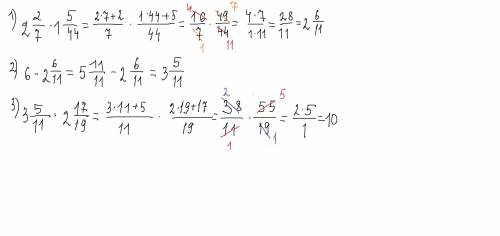 1) 2 2/7 · 1 5/44 = (2·7+2)/7 · (1·44+5)/44 = 16/7 · 49/44 = (4·7)/(1·11) = 28/11 = 2 6/11
2) 6 - 2 6/11 = 5 11/11 - 2 6/11 = 3 5/11
3) 3 5/11 · 2 17/19 = (3·11+5)/11 · (2·19+17)/19 = 38/11 · 55/19 = (2·5)/1 = 10